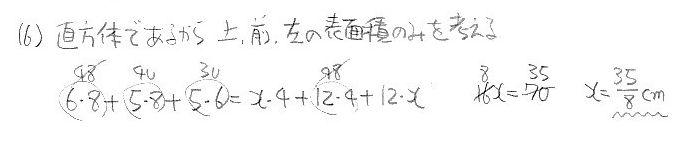 (6) 直方体であるから 上, 前, 左の表面積のみを考える
48 40 30 48 8 35
6・8+5・8+5・6=x・4+12・4+12・x 16x=70 x=35/8 cm